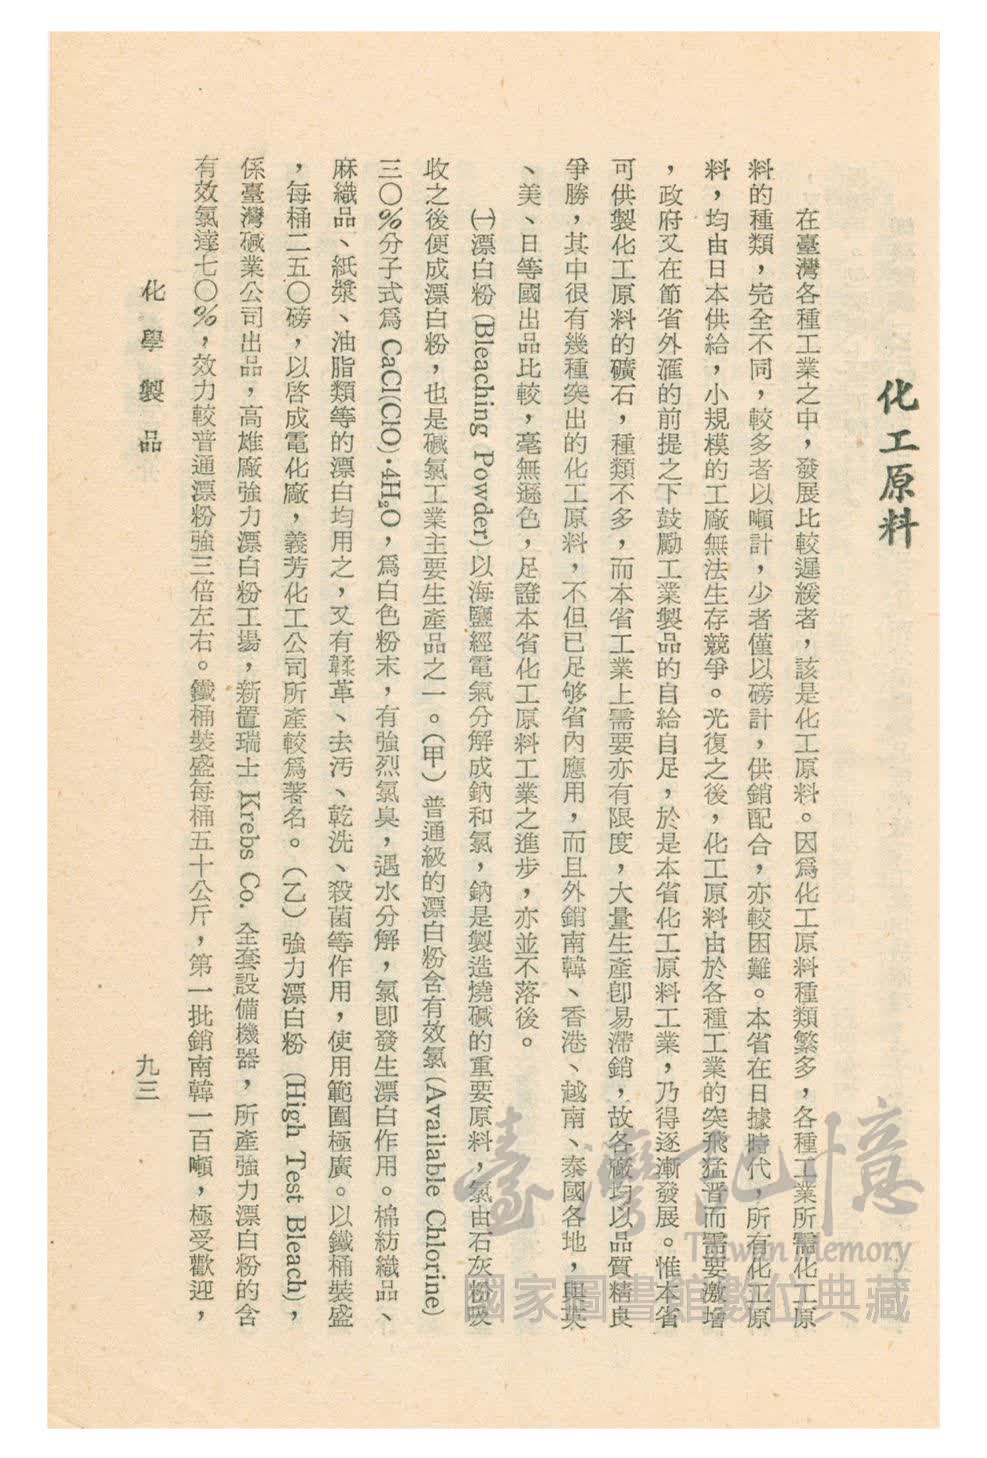 化工原料
在臺灣各種工業之中，發展比較遲緩者，該是化工原料。因爲化工原料種類繁多，各種工業所需化工原
料的種類，完全不同，較多者以噸計，少者僅以磅計，供銷配合，亦較困難。本省在日據時代，所有化工原
料，均由日本供給，小規模的工廠無法生存競爭。光復之後，化工原料由於各種工業的突飛猛晋而需要激增
，政府又在節省外滙的前提之下鼓勵工業製品的自給自足，於是本省化工原料工業，乃得逐漸發展。惟本省
可供製化工原料的礦石，種類不多，而本省工業上需要亦有限度，大量生產卽易滯銷，故各廠均以品質精良
爭勝，其中很有幾種突出的化工原料，不但已足够省內應用，而且外銷南韓、香港、越南、泰國各地，與英
、美、日等國出品比較，毫無遜色，足證本省化工原料工業之進步，亦並不落後。
㈠漂白粉(Bleaching Powder)以海鹽經電氣分解成鈉和氯，鈉是製造燒碱的重要原料，氯由石灰粉吸
收之後便成漂白粉，也是碱氯工業主要生產品之一。（甲）普通級的漂白粉含有效氯(Available Chlorine)
三〇%分子式爲 CaCl(ClO)·4H₂O，爲白色粉末，有強烈氯臭，遇水分解，氯卽發生漂白作用。棉紡織品、
麻織品、紙漿、油脂類等的漂白均用之，又有鞣革、去汚、乾洗、殺菌等作用，使用範圍極廣。以鐵桶裝盛
，每桶二五〇磅，以啓成電化廠，義芳化工公司所產較爲著名。（乙）強力漂白粉 (High Test Bleach)，
係臺灣碱業公司出品，高雄廠強力漂白粉工場，新置瑞士 Krebs Co. 全套設備機器，所產強力漂白粉的含
有效氯達七〇%，效力較普通漂粉強三倍左右。鐵桶裝盛每桶五十公斤，第一批銷南韓一百噸，極受歡迎，
化學製品
九三
臺灣記憶
Taiwan Memory
國家圖書館數位典藏